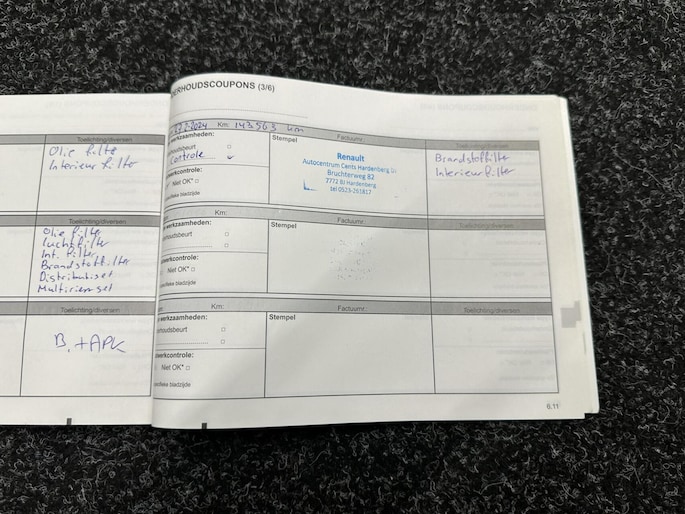 Toelichting/diversen
Olie filter
Interieur filter
Toelichting/diversen
Olie filter
luchtfilter
Int. filter
Brandstoffilter
Distributieset
Multiriem set
Toelichting/diversen
B. + APK
ERHOUDSCOUPONS (3/6)
2-2024 Km: 143.563 km
werkzaamheden:
erhoudsbeurt
Controle
werkcontrole:
Niet OK*
ecifieke bladzijde
Stempel Factuurnr.
Renault
Autocentrum Cents Hardenberg
Bruchterweg 82
7772 BJ Hardenberg
tel 0523-261817
Toelichting/diversen
Brandstoffilter
Interieur filter
Km:
werkzaamheden:
erhoudsbeurt
werkcontrole:
Niet OK*
ecifieke bladzijde
Stempel Factuurnr.
Toelichting/diversen
Km:
werkzaamheden:
erhoudsbeurt
werkcontrole:
Niet OK*
ecifieke bladzijde
Stempel Factuurnr.
Toelichting/diversen
6.11